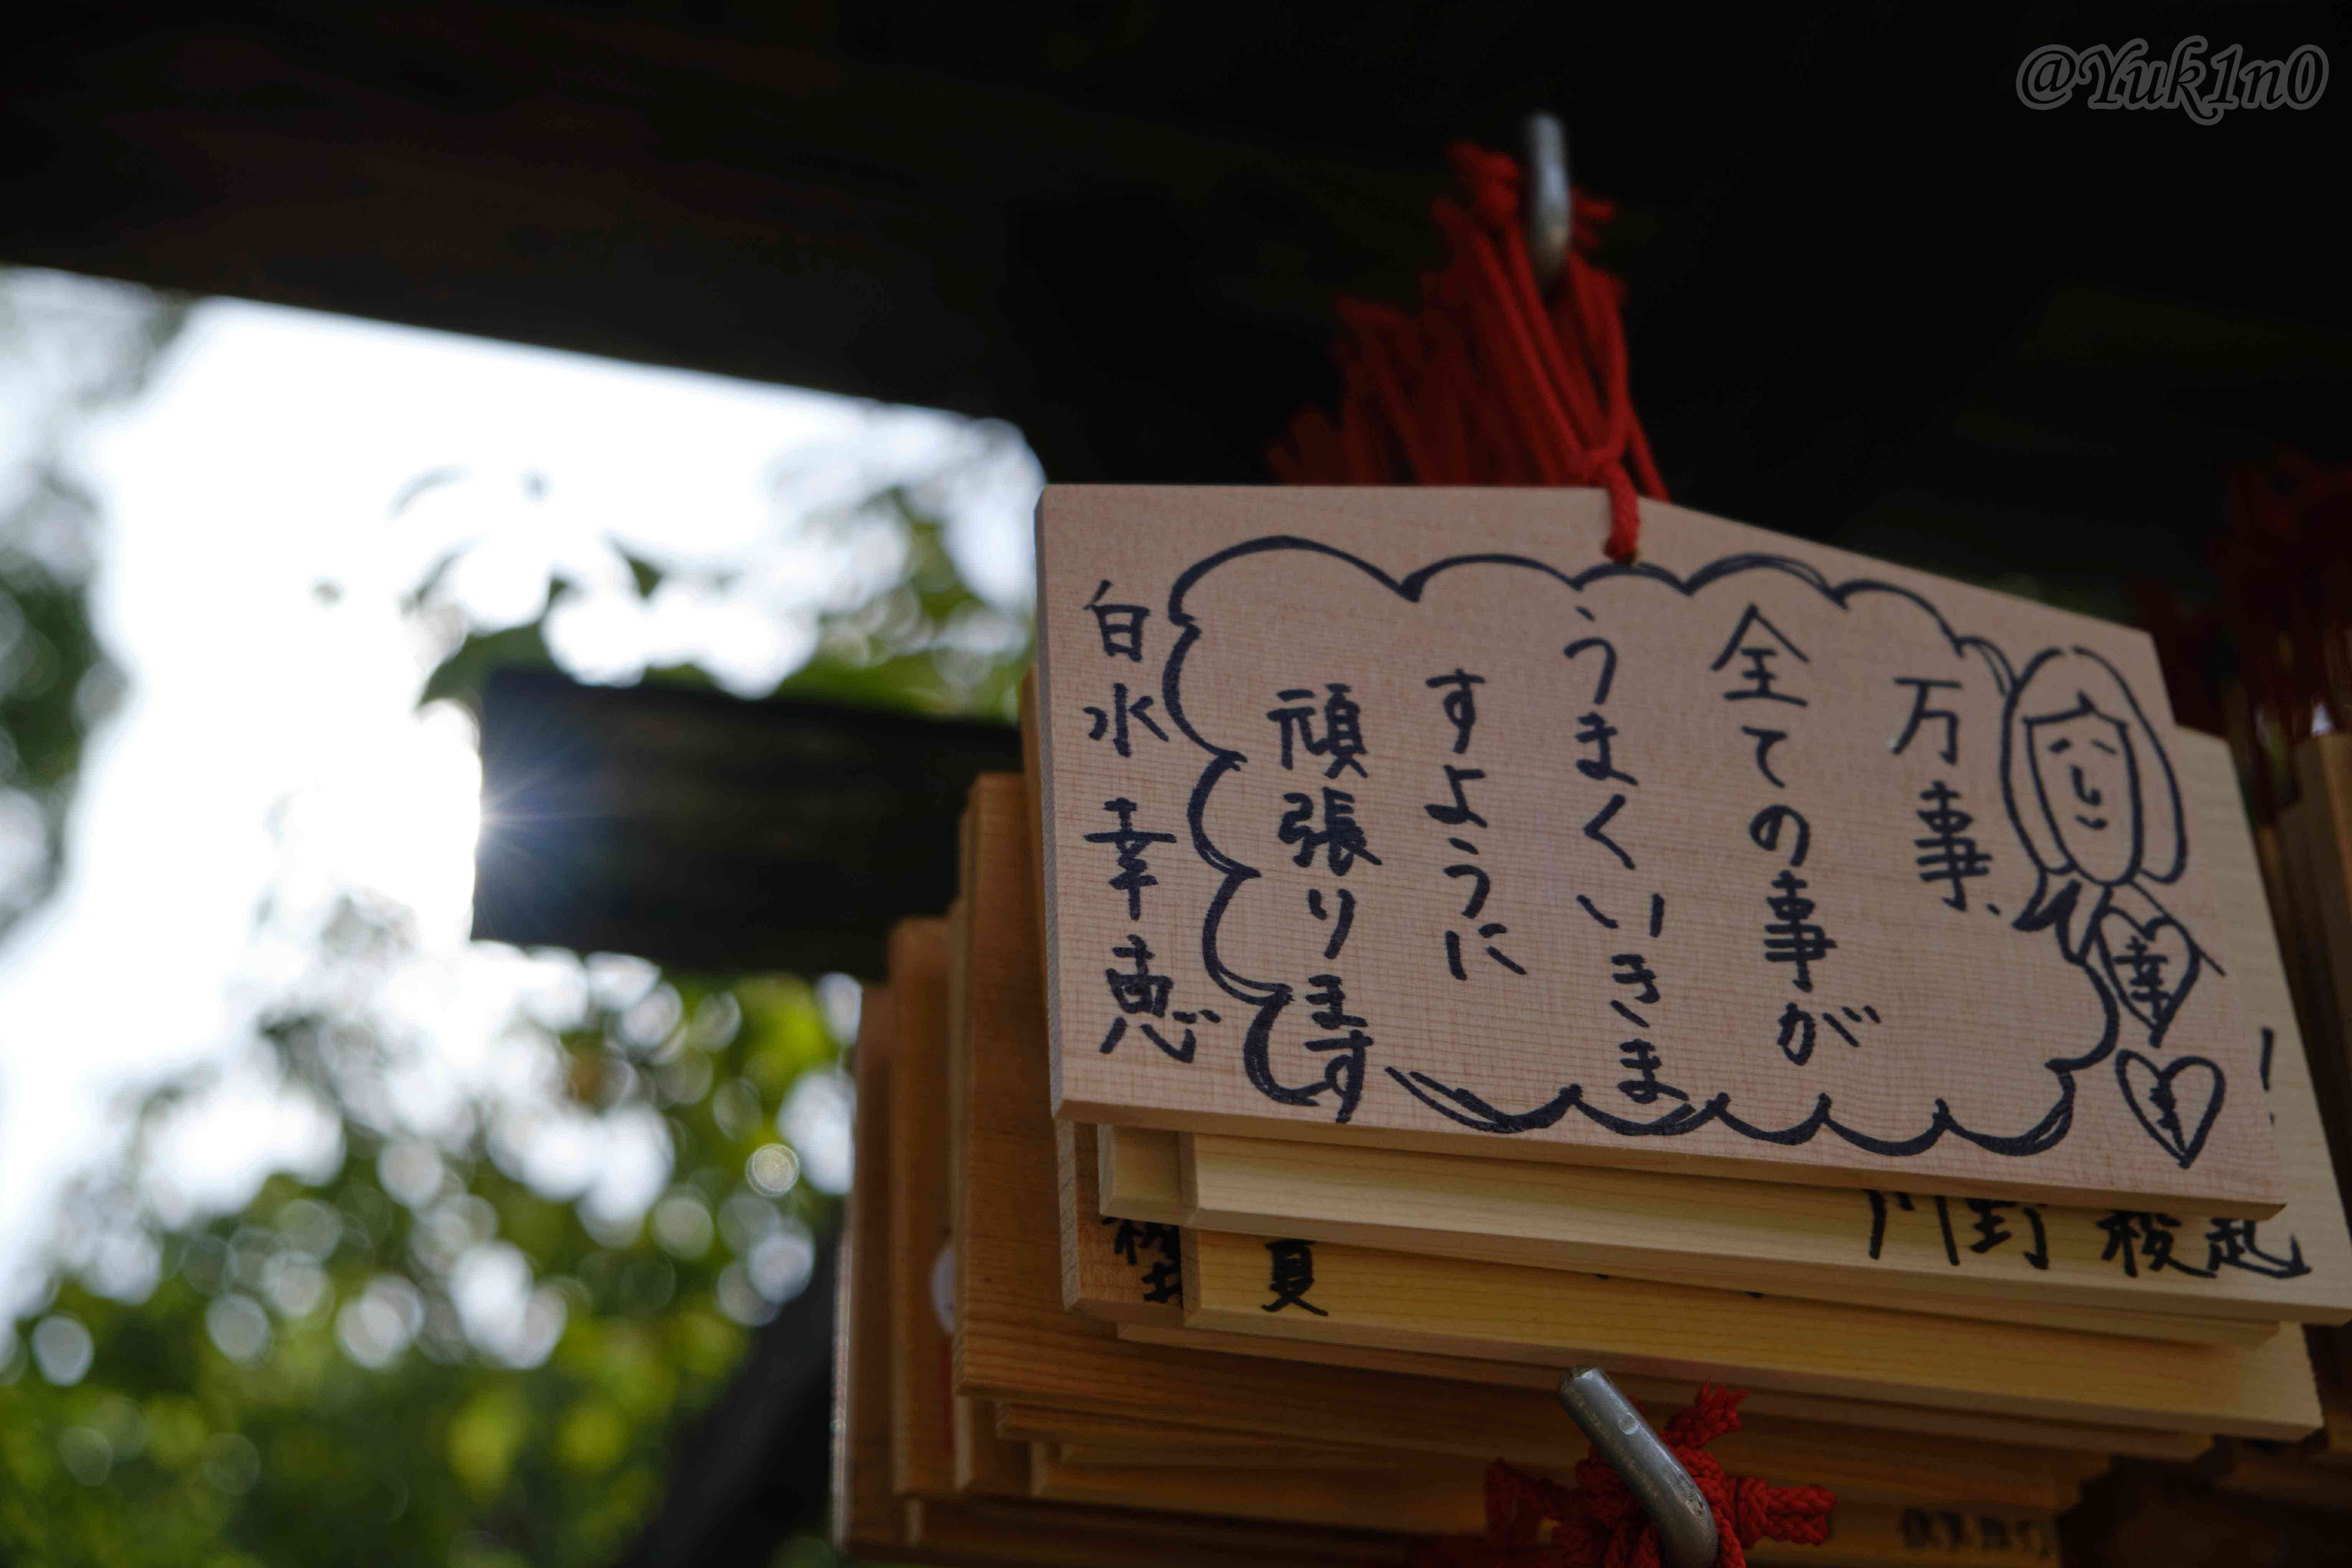 @Yuk1n0
万事、
全ての事が
うまくいきま
すように
頑張ります
白水幸恵
幸
幸
川野 稜起
夏